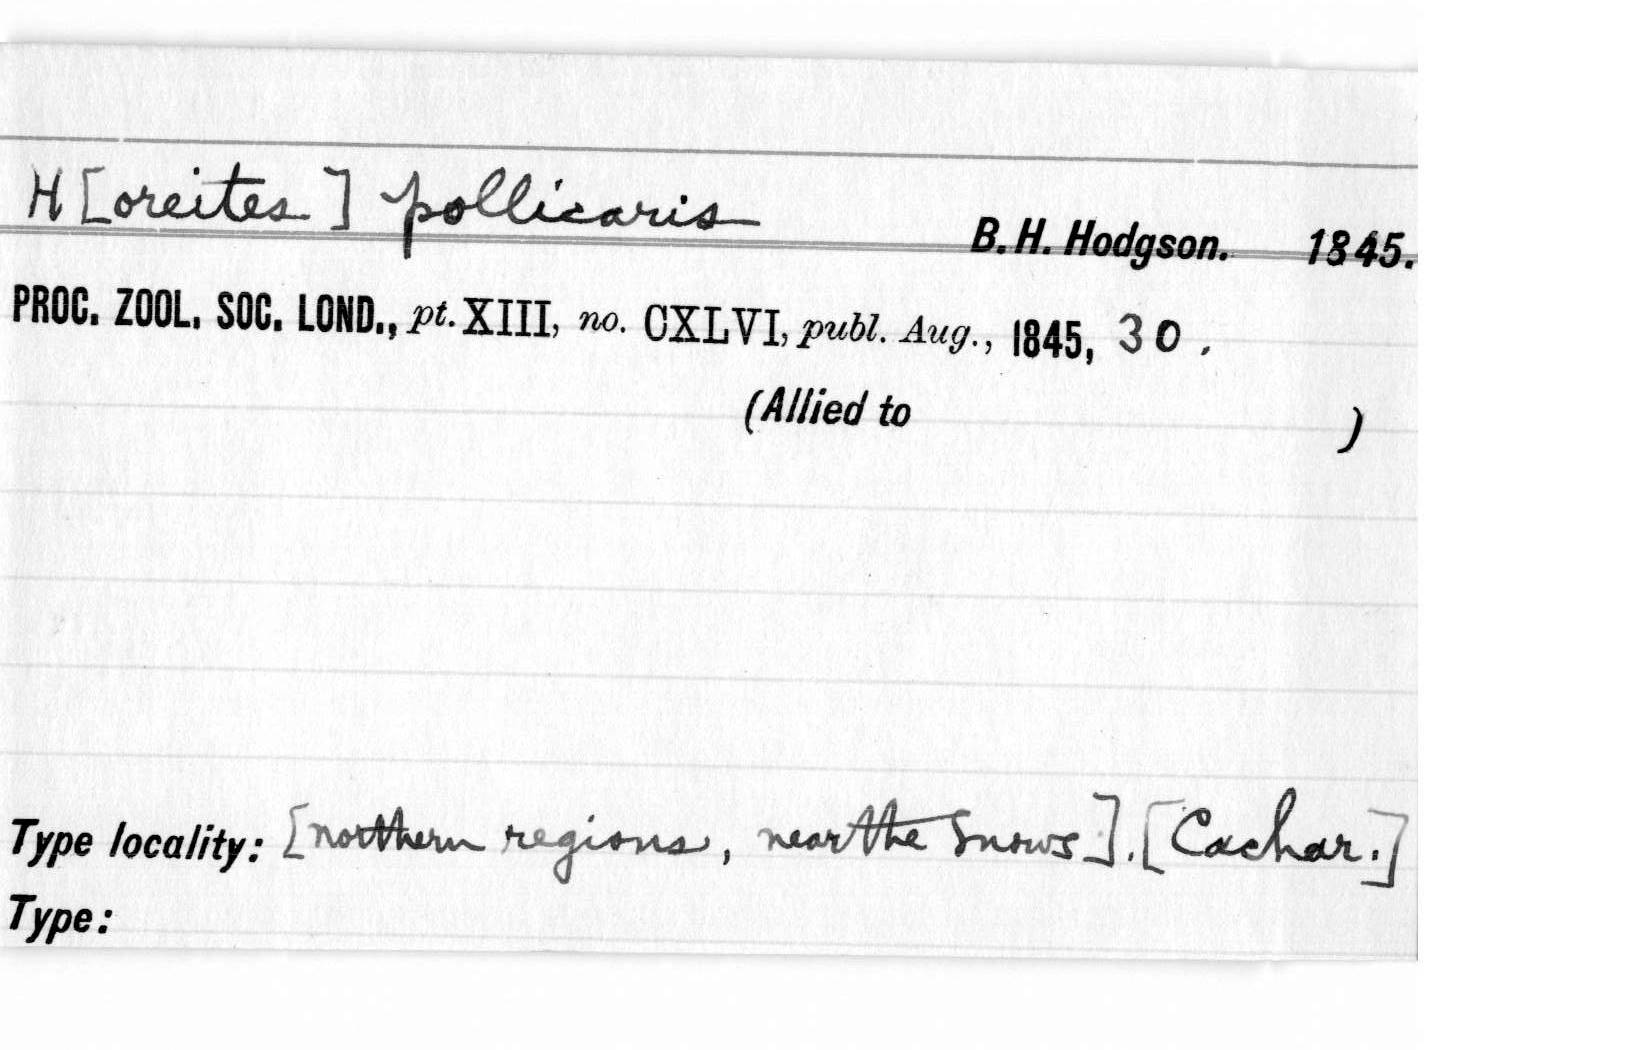 H[oreites] pollicaris B. H. Hodgson. 1845.
PROC. ZOOL. SOC. LOND., pt. XIII, no. CXLVI, publ. Aug., 1845, 30.
(Allied to )
Type locality: [northern regions, near the snows]. [Cachar.]
Type: